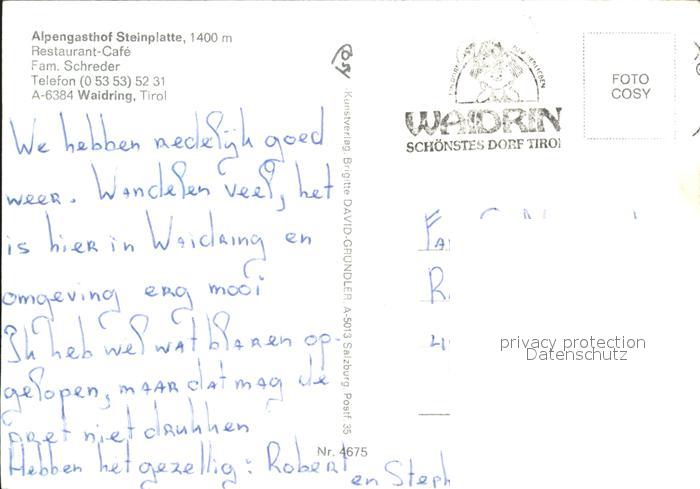 Alpengasthof Steinplatte, 1400 m
Restaurant-Café
Fam. Schreder
Telefon (0 53 53) 52 31
A-6384 Waidring, Tirol
We hebben redelijk goed
weer. Wandelen veel, het
is hier in Waidring en
omgeving erg mooi
Ik heb wel wat blaren op-
gelopen, maar dat mag de
pret niet drukken
Hebben het gezellig: Robert
en Steph
Kunstverlag Brigitte DAVID-GRÜNDLER A-5013 Salzburg Postf. 35
Nr. 4675
WAIDRIN
SCHÖNSTES DORF TIROL
FOTO
COSY
privacy protection
Datenschutz